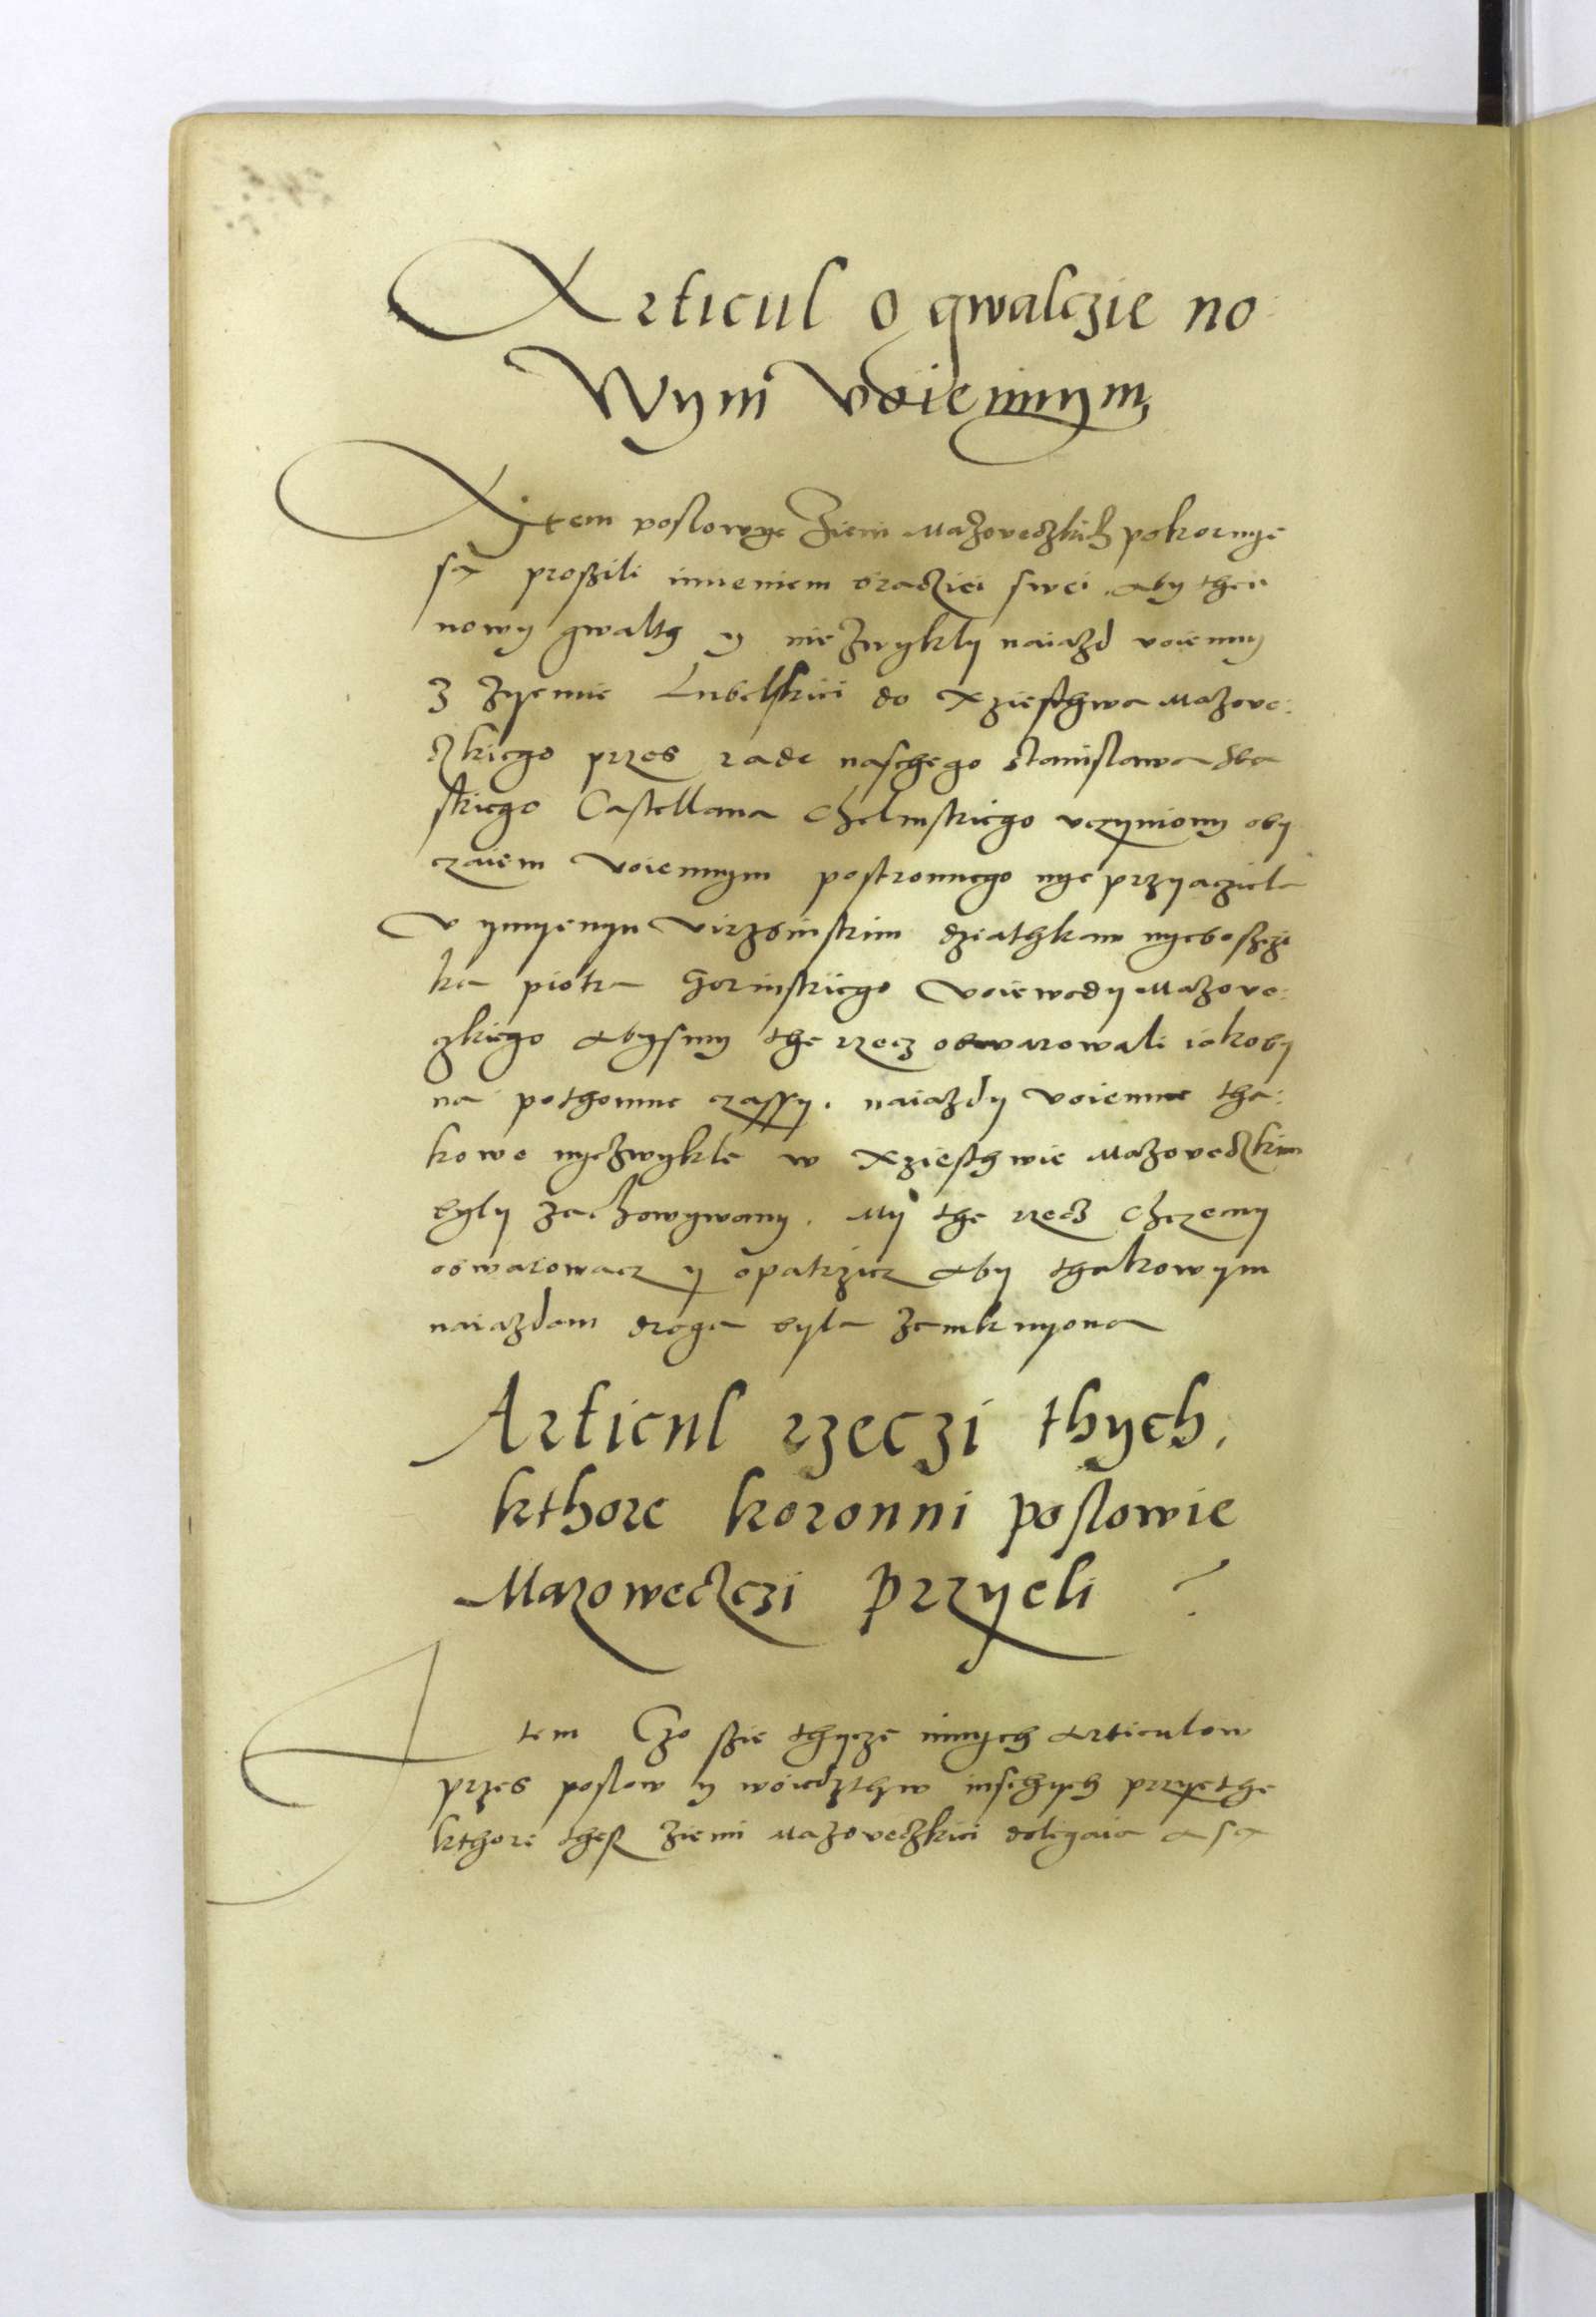 Articul o gwalczie no
wym voiennym
Item poslowye Ziem Mazoveczkich pokornye
sa proszili imieniem braciei swei, aby then
nowy gwalth y niezwykly naiazd voienny
z zyemie Lubelskiei do Xziesthwa Mazove:
czkiego przes rade naschego Stanislawa
skiego Castellana Chelmskiego uczyniony oby
czaiem voiennym postronnego nye przyaciela
w ymyenyu dziathkam nyeboszczi
ka piotra Gorinskiego Voiewody Mazove:
czkiego abysmy the rzecz obwarowali iakoby
na pothomne czassy, naiazdy voienne tha:
kowe nyezwykle w Xziesthwie Mazoveczkim
byly zachowywany. My the rzecz chczemy
obwarowacz y opatrzicz aby thakowym
naiazdom droga byla zamknyona
Articul rzeczi thych,
kthore koronni poslowie
Mazoweczczi przyeli
Item Czo szie thycze innych articulow
przes poslow y woiedzthw inschych przyethe
kthore thesz ziemi Mazoveczkiei dolegaia a sa